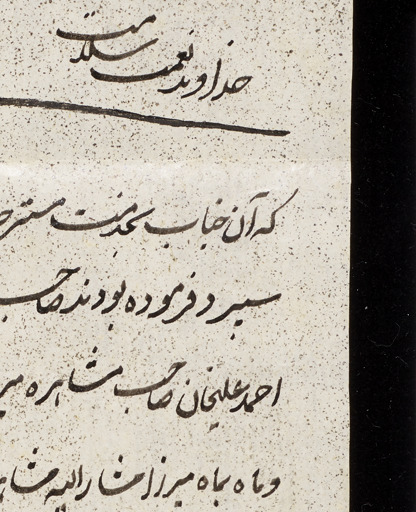 خداوند نعمت سلامت
که آن جناب بخدمت
سپرد فرموده بودند صاحب
احمد علیخان صاحب مشاهره
و ماه بماه میرزا مشار الیه